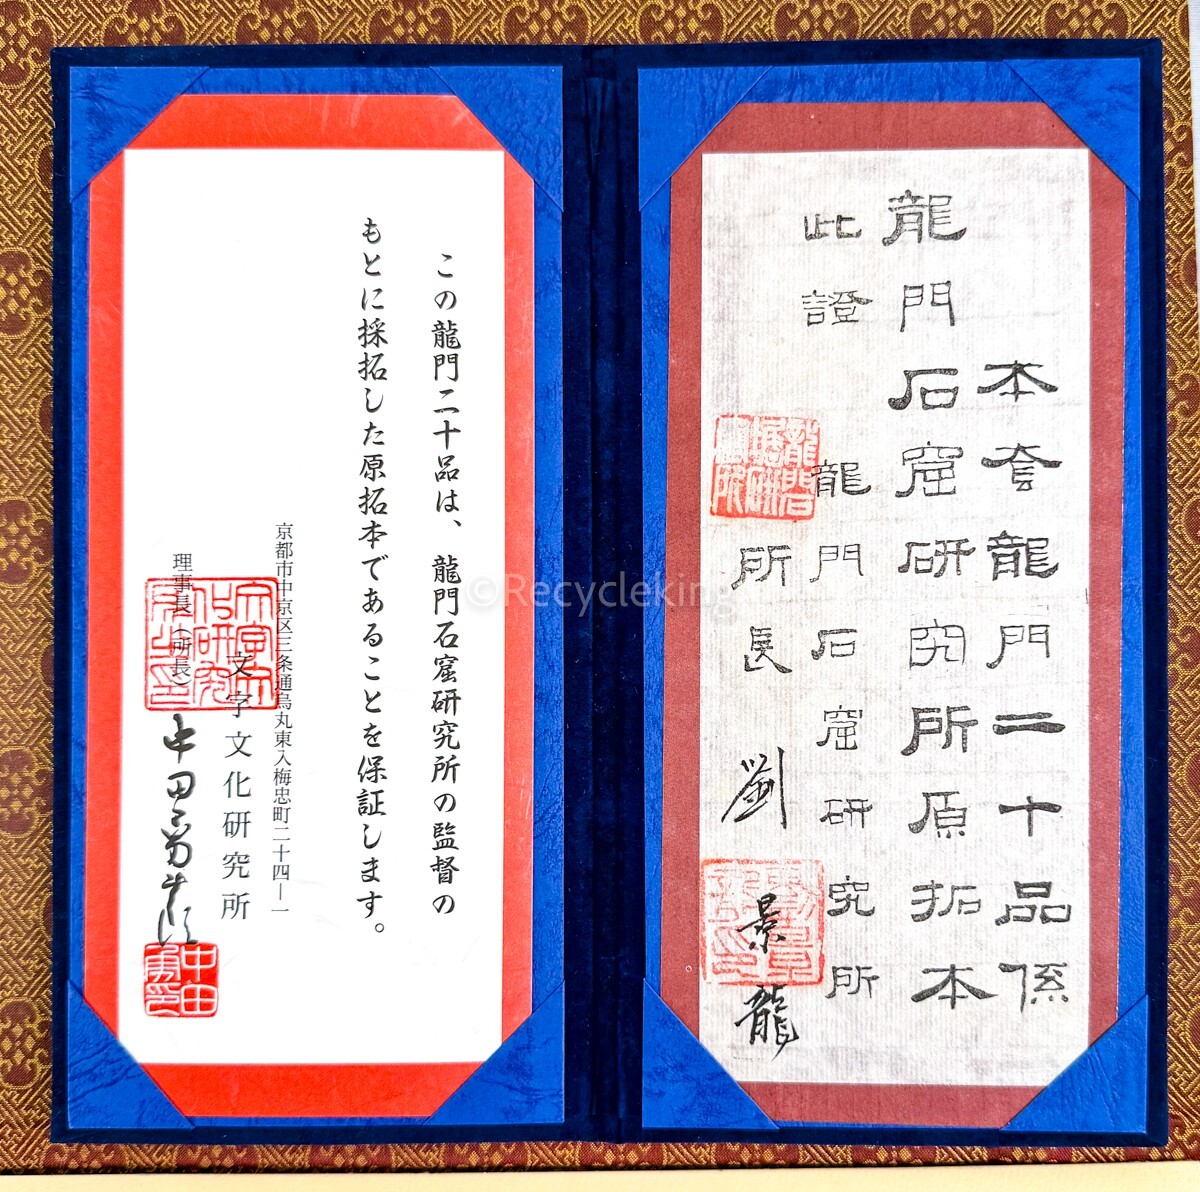 本套龍門二十品係
龍門石窟研究所原拓本
此證
龍門石窟研究所
所長 劉景龍
この龍門二十品は、龍門石窟研究所の監督の
もとに採拓した原拓本であることを保証します。
京都市中京区三条通烏丸東入梅忠町二十四—一
文字文化研究所
理事長（所長）
中田
©Recycleking